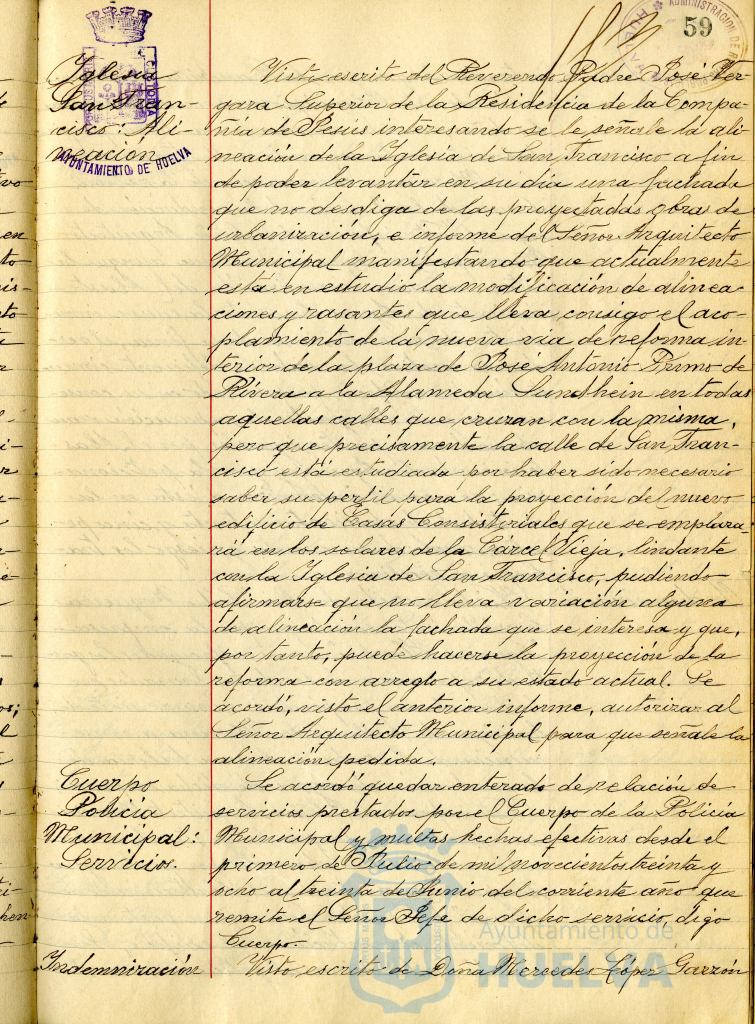 59
ADMINISTRACION DE
HUELVA
AYUNTAMIENTO DE HUELVA
Iglesia
San Fran-
cisco: Ali-
neación
Visto escrito del Reverendo Padre José Ver-
gara Superior de la Residencia de la Compa-
ñia de Jesús interesando se le señale la ali-
neación de la Iglesia de San Francisco a fin
de poder levantar en su día una fachada
que no desdiga de las proyectadas obras de
urbanización, e informe del Señor Arquitecto
Municipal manifestando que actualmente
está en estudio la modificación de alinea-
ciones y rasantes que lleva consigo el aco-
plamiento de la nueva via de reforma in-
terior de la plaza de José Antonio Primo de
Rivera a la Alameda Sundhein en todas
aquellas calles que cruzan con la misma,
pero que precisamente la calle de San Fran-
cisco está estudiada por haber sido necesario
saber su perfil para la proyección del nuevo
edificio de Casas Consistoriales que se emplaza-
rá en los solares de la Cárcel Vieja, lindante
con la Iglesia de San Francisco, pudiendo
afirmarse que no lleva variación alguna
de alineación la fachada que se interesa y que,
por tanto, puede hacerse la proyección de la
reforma con arreglo a su estado actual. Se
acordó, visto el anterior informe, autorizar al
Señor Arquitecto Municipal para que señale la
alineación pedida.
Cuerpo
Policía
Municipal:
Servicios.
Se acordó quedar enterado de relación de
servicios prestados por el Cuerpo de la Policía
Municipal y multas hechas efectivas desde el
primero de Julio de mil novecientos treinta y
ocho al treinta de Junio del corriente año que
remite el Señor Jefe de dicho servicio, digo
Cuerpo.
Indemnización
Visto, escrito de Doña Mercedes López Garzón
Ayuntamiento de
HUELVA